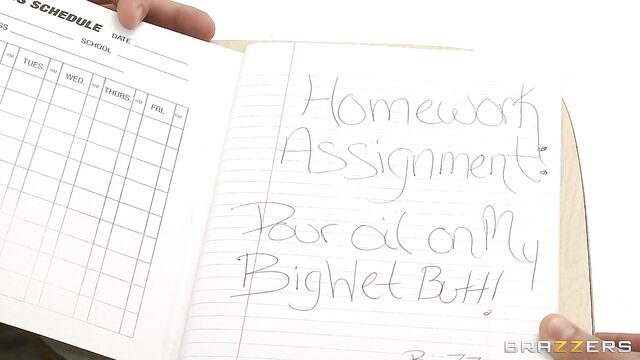 SS SCHEDULE
DATE
SCHOOL
TUES. RM WED. RM THURS. RM FRI. RM
Homework
Assignment:
Pour oil on My
Big Wet Butt!
BRAZZERS